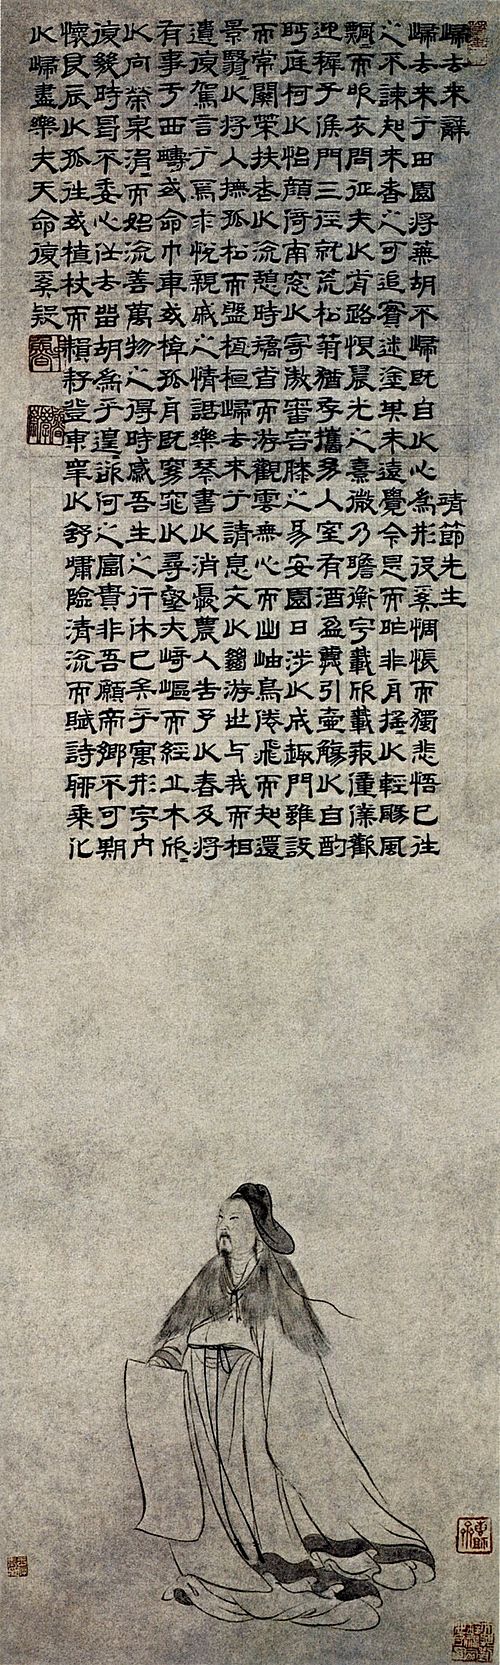 歸去來辭　靖節先生
歸去來兮田園將蕪胡不歸既自以心為形役奚惆悵而獨悲悟已往
之不諫知來者之可追實迷塗其未遠覺今是而昨非舟搖〻以輕颺風
飄〻而吹衣問征夫以前路恨晨光之熹微乃瞻衡宇載欣載奔僮僕歡
迎稚子候門三徑就荒松菊猶存攜幼入室有酒盈罇引壺觴以自酌
眄庭柯以怡顏倚南窓以寄傲審容膝之易安園日涉以成趣門雖設
而常關策扶老以流憩時矯首而游觀雲無心而出岫鳥倦飛而知還
景翳〻以將入撫孤松而盤桓歸去來兮請息交以絕游世与我而相
遺復駕言兮焉求悅親戚之情話樂琴書以消憂農人告予以春及將
有事乎西疇或命巾車或棹孤舟既窈窕以尋壑亦崎嶇而經丘木欣〻
以向榮泉涓〻而始流善萬物之得時感吾生之行休已矣乎寓形宇內
復幾時曷不委心任去留胡為乎遑〻欲何之富貴非吾願帝鄉不可期
懷良辰以孤往或植杖而耘耔登東皋以舒嘯臨清流而賦詩聊乘化
以歸盡樂夫天命復奚疑